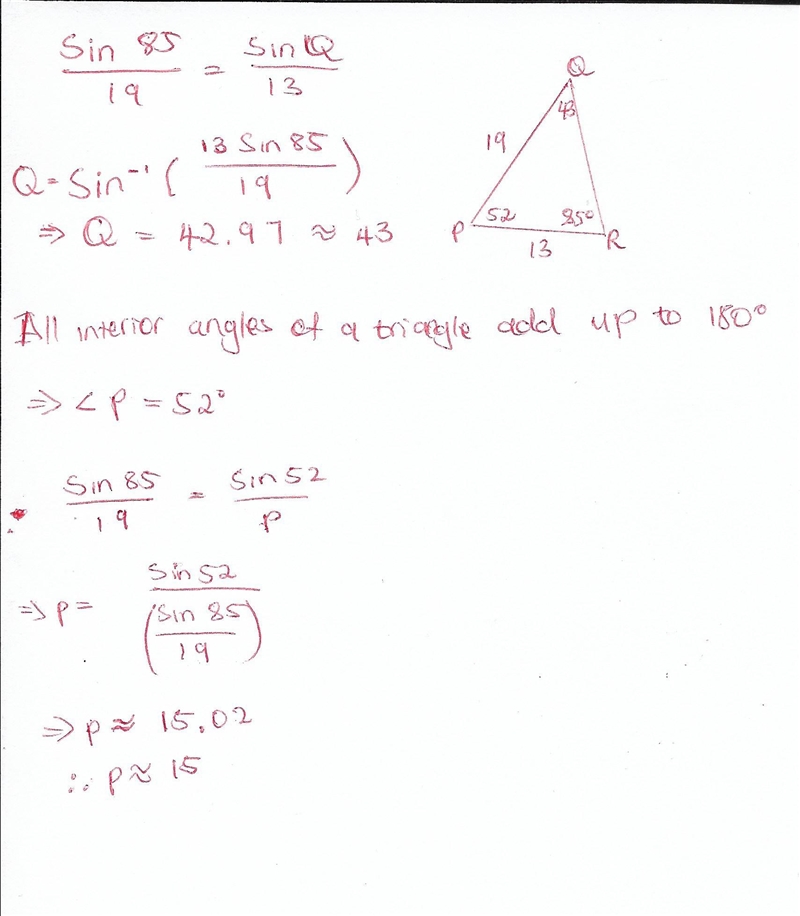 Sin 85 / 19 = Sin Q / 13
Q = Sin⁻¹ ( 13 Sin 85 / 19 )
⇒ Q = 42.97 ≈ 43
Q
43
19
52
85°
P
13
R
All interior angles of a triangle add up to 180°
⇒ < P = 52°
Sin 85 / 19 = Sin 52 / P
⇒ p = Sin 52 / ( Sin 85 / 19 )
⇒ p ≈ 15.02
∴ p ≈ 15